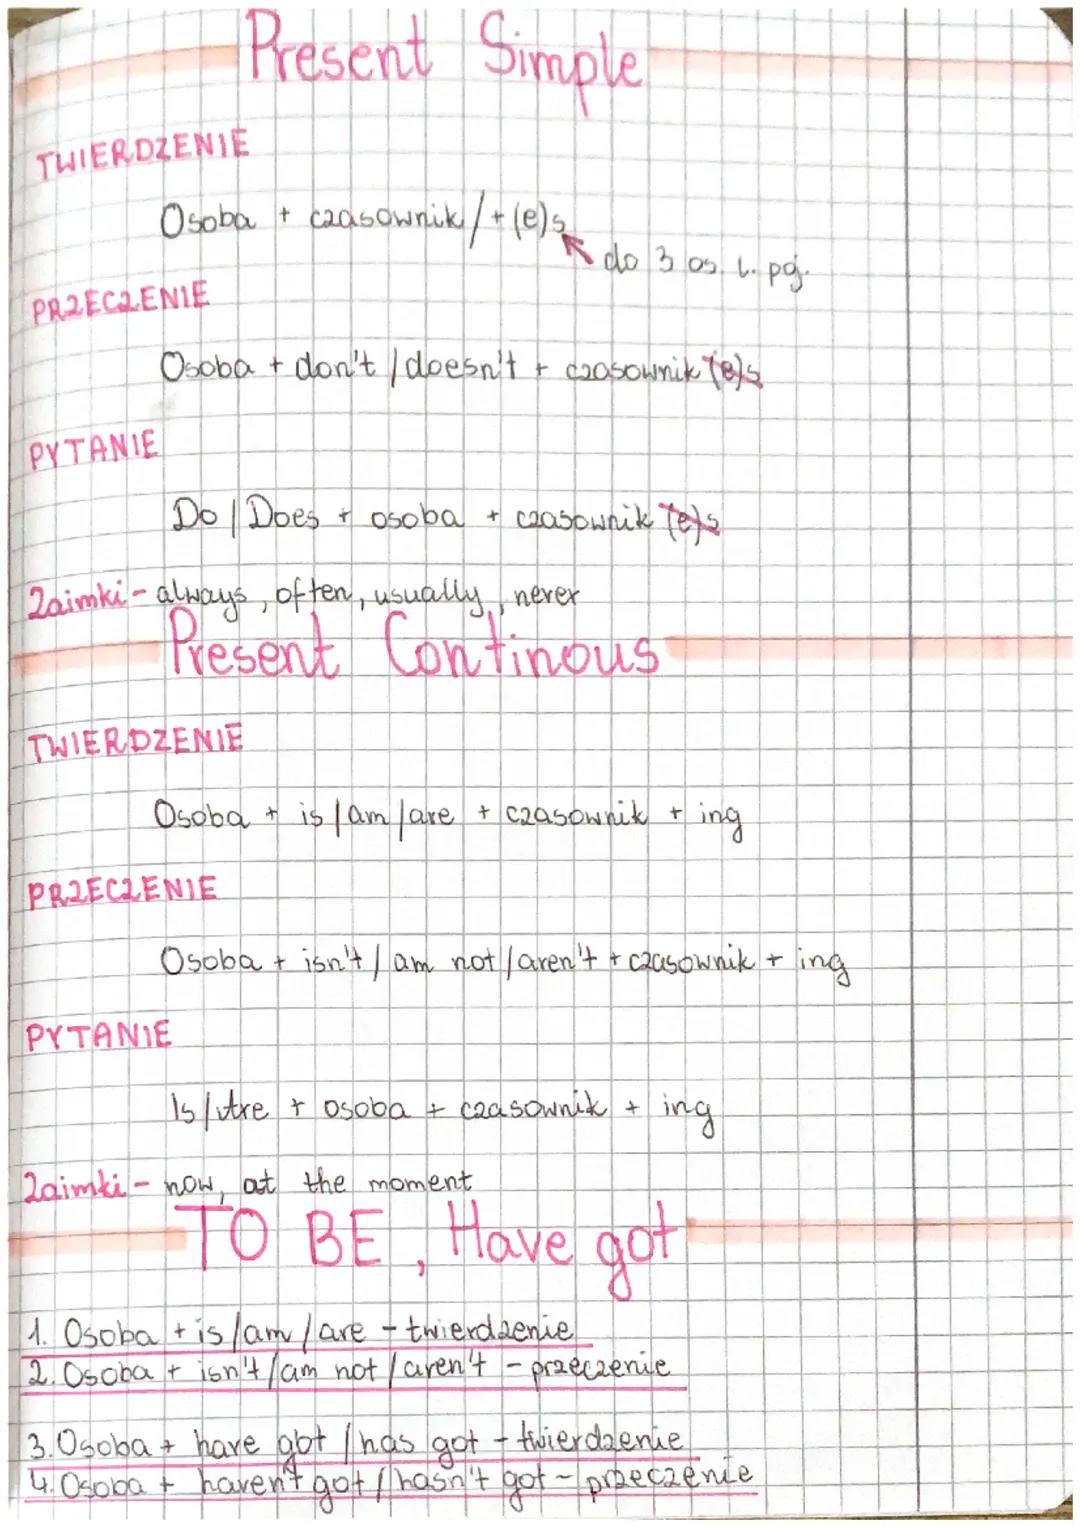 Present Simple
TWIERDZENIE
Osoba + czasownik / + (e)s
do 3 os l. poj.
PRZECZENIE
Osoba + don't / doesn't + czasownik (e)s
PYTANIE
Do / Does + osoba + czasownik (e)s
Zaimki - always, often, usually, never
Present Continous
TWIERDZENIE
Osoba + is / am / are + czasownik + ing
PRZECZENIE
Osoba + isn't / am not / aren't + czasownik + ing
PYTANIE
Is / Are + osoba + czasownik + ing
Zaimki - now, at the moment
TO BE, Have got
1. Osoba + is / am / are - twierdzenie
2. Osoba + isn't / am not / aren't - przeczenie
3. Osoba + have got / has got - twierdzenie
4. Osoba + haven't got / hasn't got - przeczenie